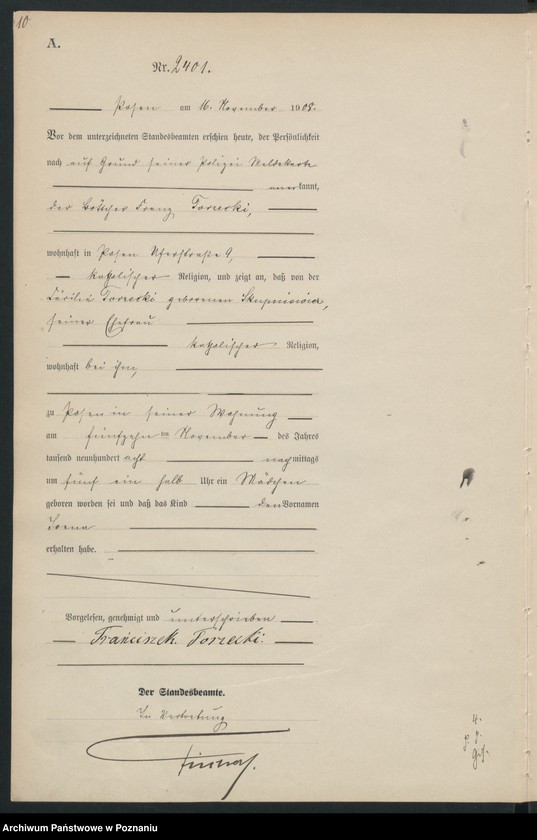 10
A.
Nr. 2401.
Posen am 16. November 1908.
Vor dem unterzeichneten Standesbeamten erschien heute, der Persönlichkeit
nach auf Grund seiner Polizei Meldekarte
anerkannt,
der Böttcher Franz Torzecki,
wohnhaft in Posen Uferstraße 9,
katholischer Religion, und zeigt an, daß von der
Torzecki geborenen
seiner Ehefrau
katholischer Religion,
wohnhaft bei ihm,
zu Posen in seiner Wohnung
am fünfzehnten November des Jahres
tausend neunhundert acht nachmittags
um fünf ein halb Uhr ein Mädchen
geboren worden sei und daß das Kind den Vornamen
Irena
erhalten habe.
Vorgelesen, genehmigt und unterschrieben
Franciszek Torzecki.
Der Standesbeamte.
In Vertretung
4.
Archiwum Państwowe w Poznaniu